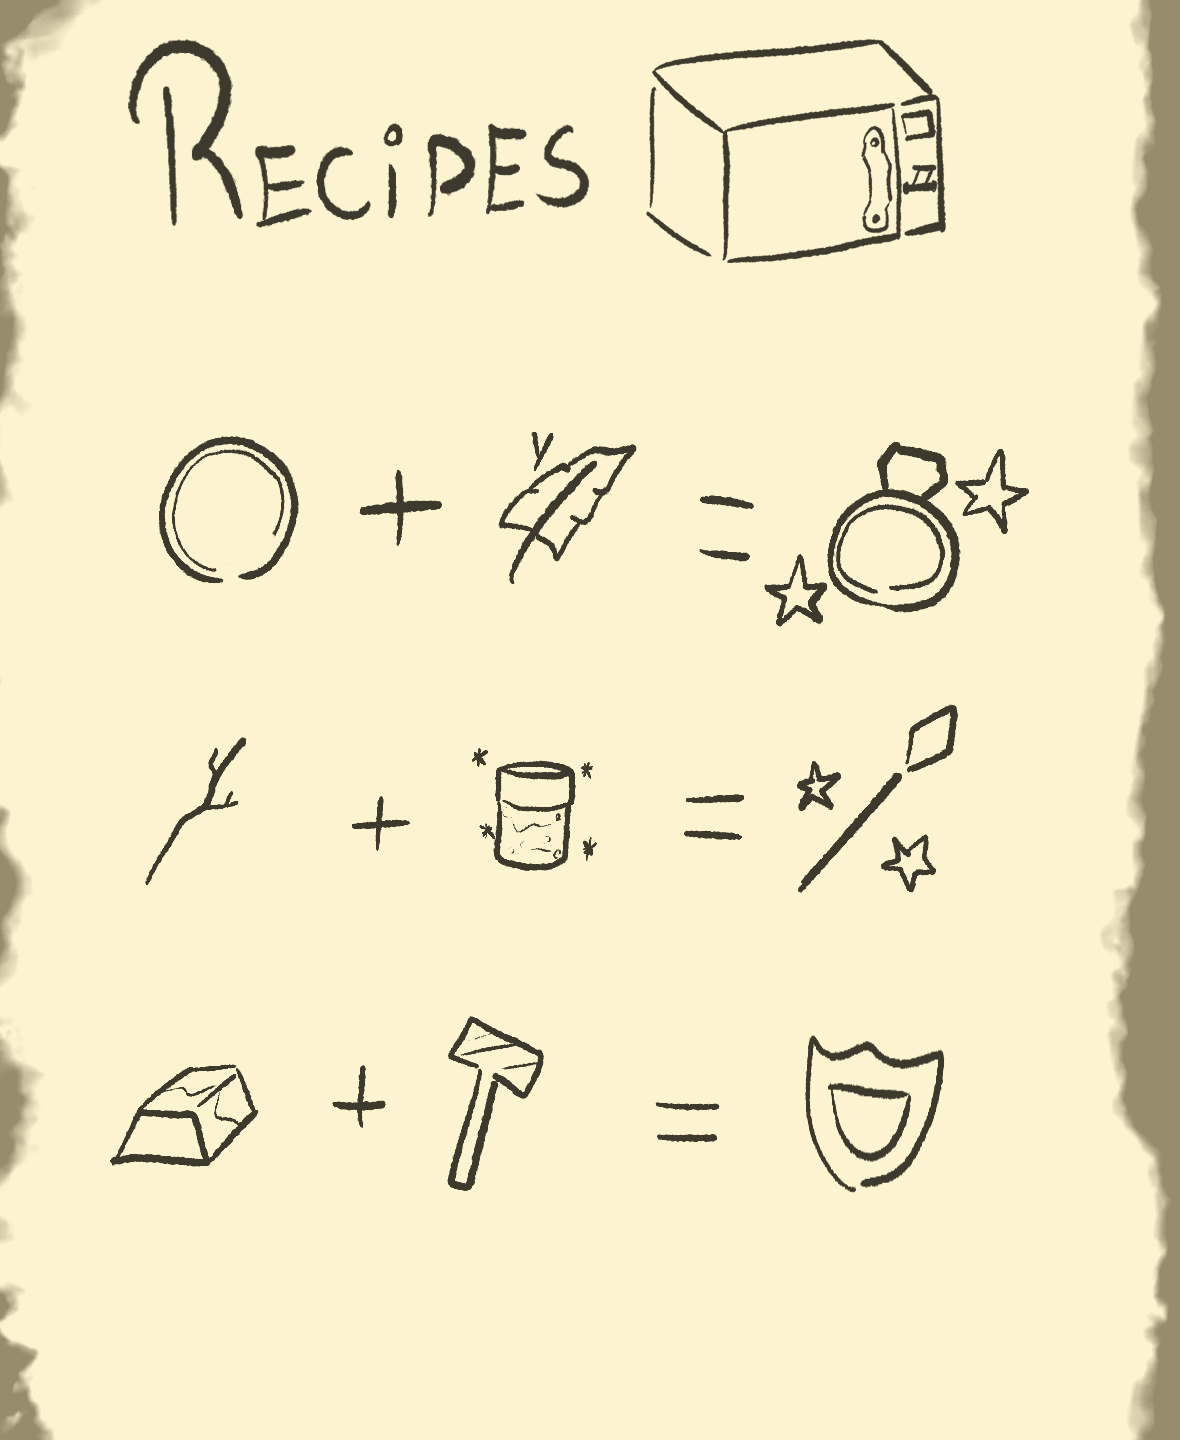 RECiPES
+ =
+ =
+ =